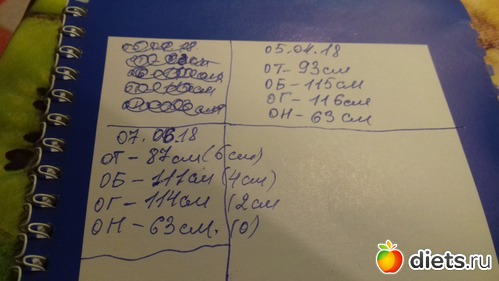 05.04.18
ОТ - 93см
ОБ - 115см
ОГ - 116см
ОН - 63 см
07.06.18
ОТ - 87см (6 см)
ОБ - 111см (4 см)
ОГ - 114см (2 см
ОН - 63см. (0)
diets.ru